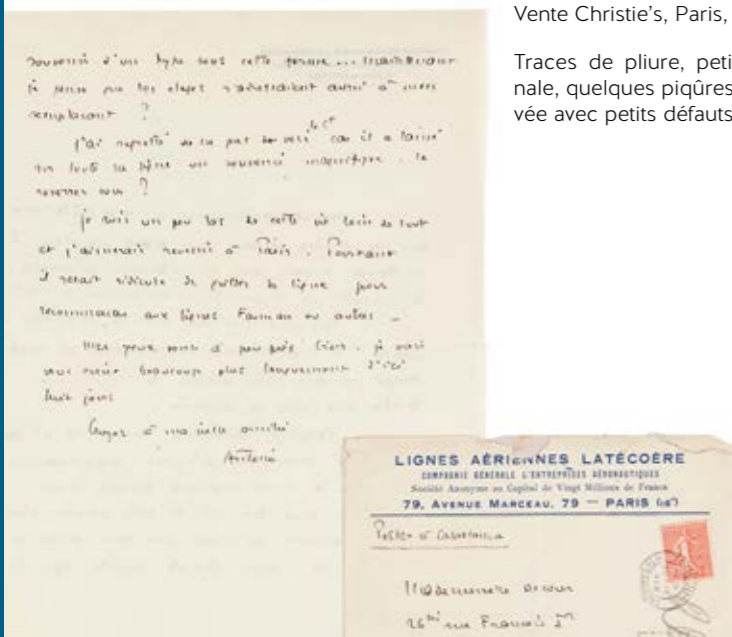 Vente Christie's, Paris,
Traces de pliure, peti
nale, quelques piqûres
vée avec petits défauts
souvenir d'un type sous cette forme ... maintenant
je pense que les étapes
?
j'ai regretté de ne pas car il a laissé
sur toute la ligne un souvenir magnifique. le
?
je suis un peu las de cette vie loin de tout
et j'aimerais revenir à Paris. Pourtant
il serait ridicule de quitter la ligne pour
recommencer aux lignes Farman ou autres _
Mes yeux sont à peu près bien. je vais
vous écrire beaucoup plus longuement d'ici
huit jours
Croyez à ma vieille amitié
Antoine
LIGNES AÉRIENNES LATÉCOÈRE
COMPAGNIE GÉNÉRALE D'ENTREPRISES AÉRONAUTIQUES
Société Anonyme au Capital de Vingt Millions de Francs
79, AVENUE MARCEAU, 79 — PARIS (16e)
Postée à Casablanca
Mademoiselle
26bis rue François Ier